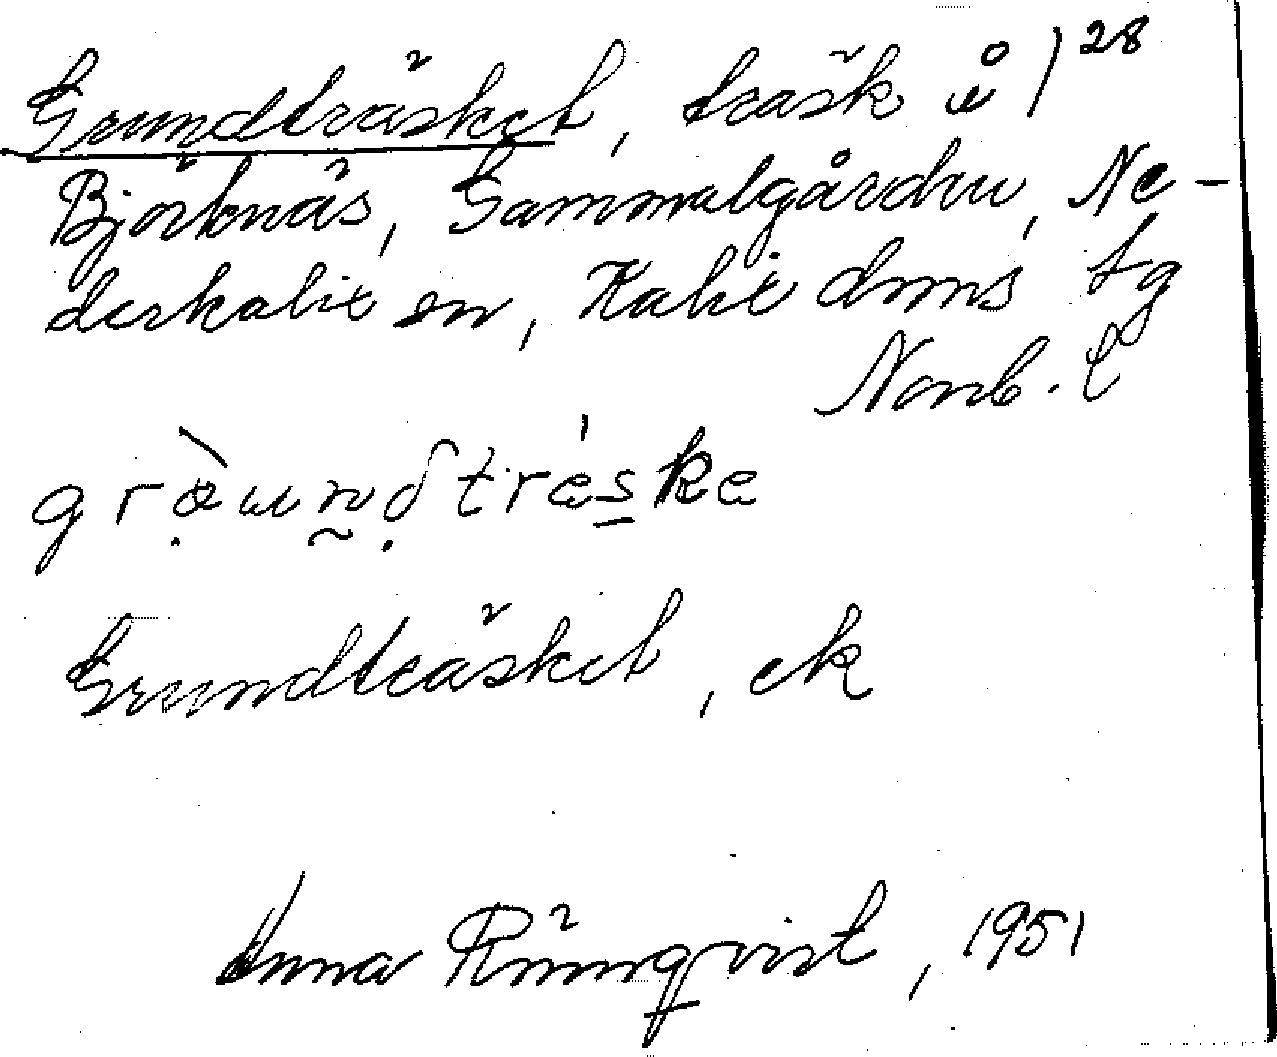 Grundträsket, träsk å 128
Björknäs, Gammelgården, Ne-
derkalix sn, Kalix dms tg
Norrb. l
gràunḍtréske
Grundträsket, ek
Anna Rönnqvist, 1951